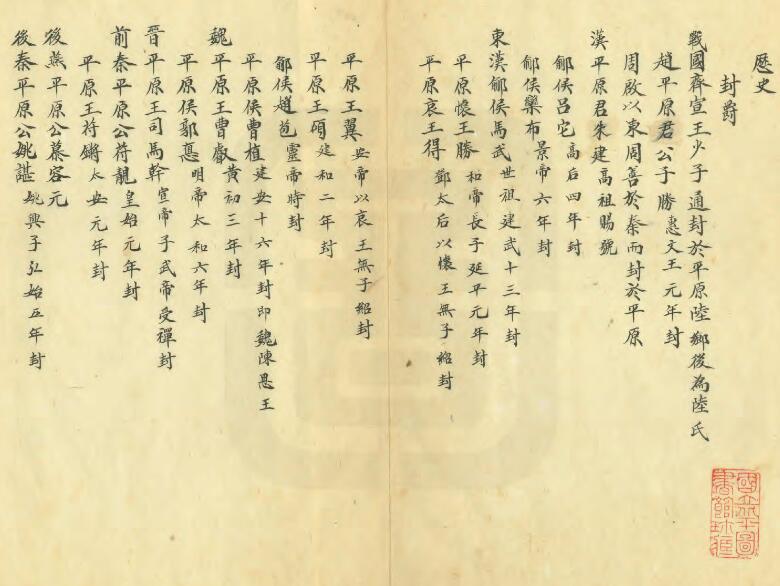 歷史
封爵
戰國齊宣王少子通封於平原陸鄉後為陸氏
趙平原君公子勝惠文王元年封
周啟以東周善於秦而封於平原
漢平原君朱建高祖賜號
鄃侯呂它高后四年封
鄃侯欒布景帝六年封
東漢鄃侯馬武世祖建武十三年封
平原懷王勝和帝長子延平元年封
平原哀王得鄧太后以懷王無子紹封
平原王翼安帝以哀王無子紹封
平原王碩建和二年封
鄃侯趙苞靈帝時封
平原侯曹植建安十六年封即魏陳思王
魏平原王曹叡黃初三年封
平原侯郭悳明帝太和六年封
晉平原王司馬幹宣帝子武帝受禪封
前秦平原公苻靚皇始元年封
平原王苻鏘太安元年封
後燕平原公慕容元
後秦平原公姚諶姚興子弘始五年封
國立北平圖書館珍藏